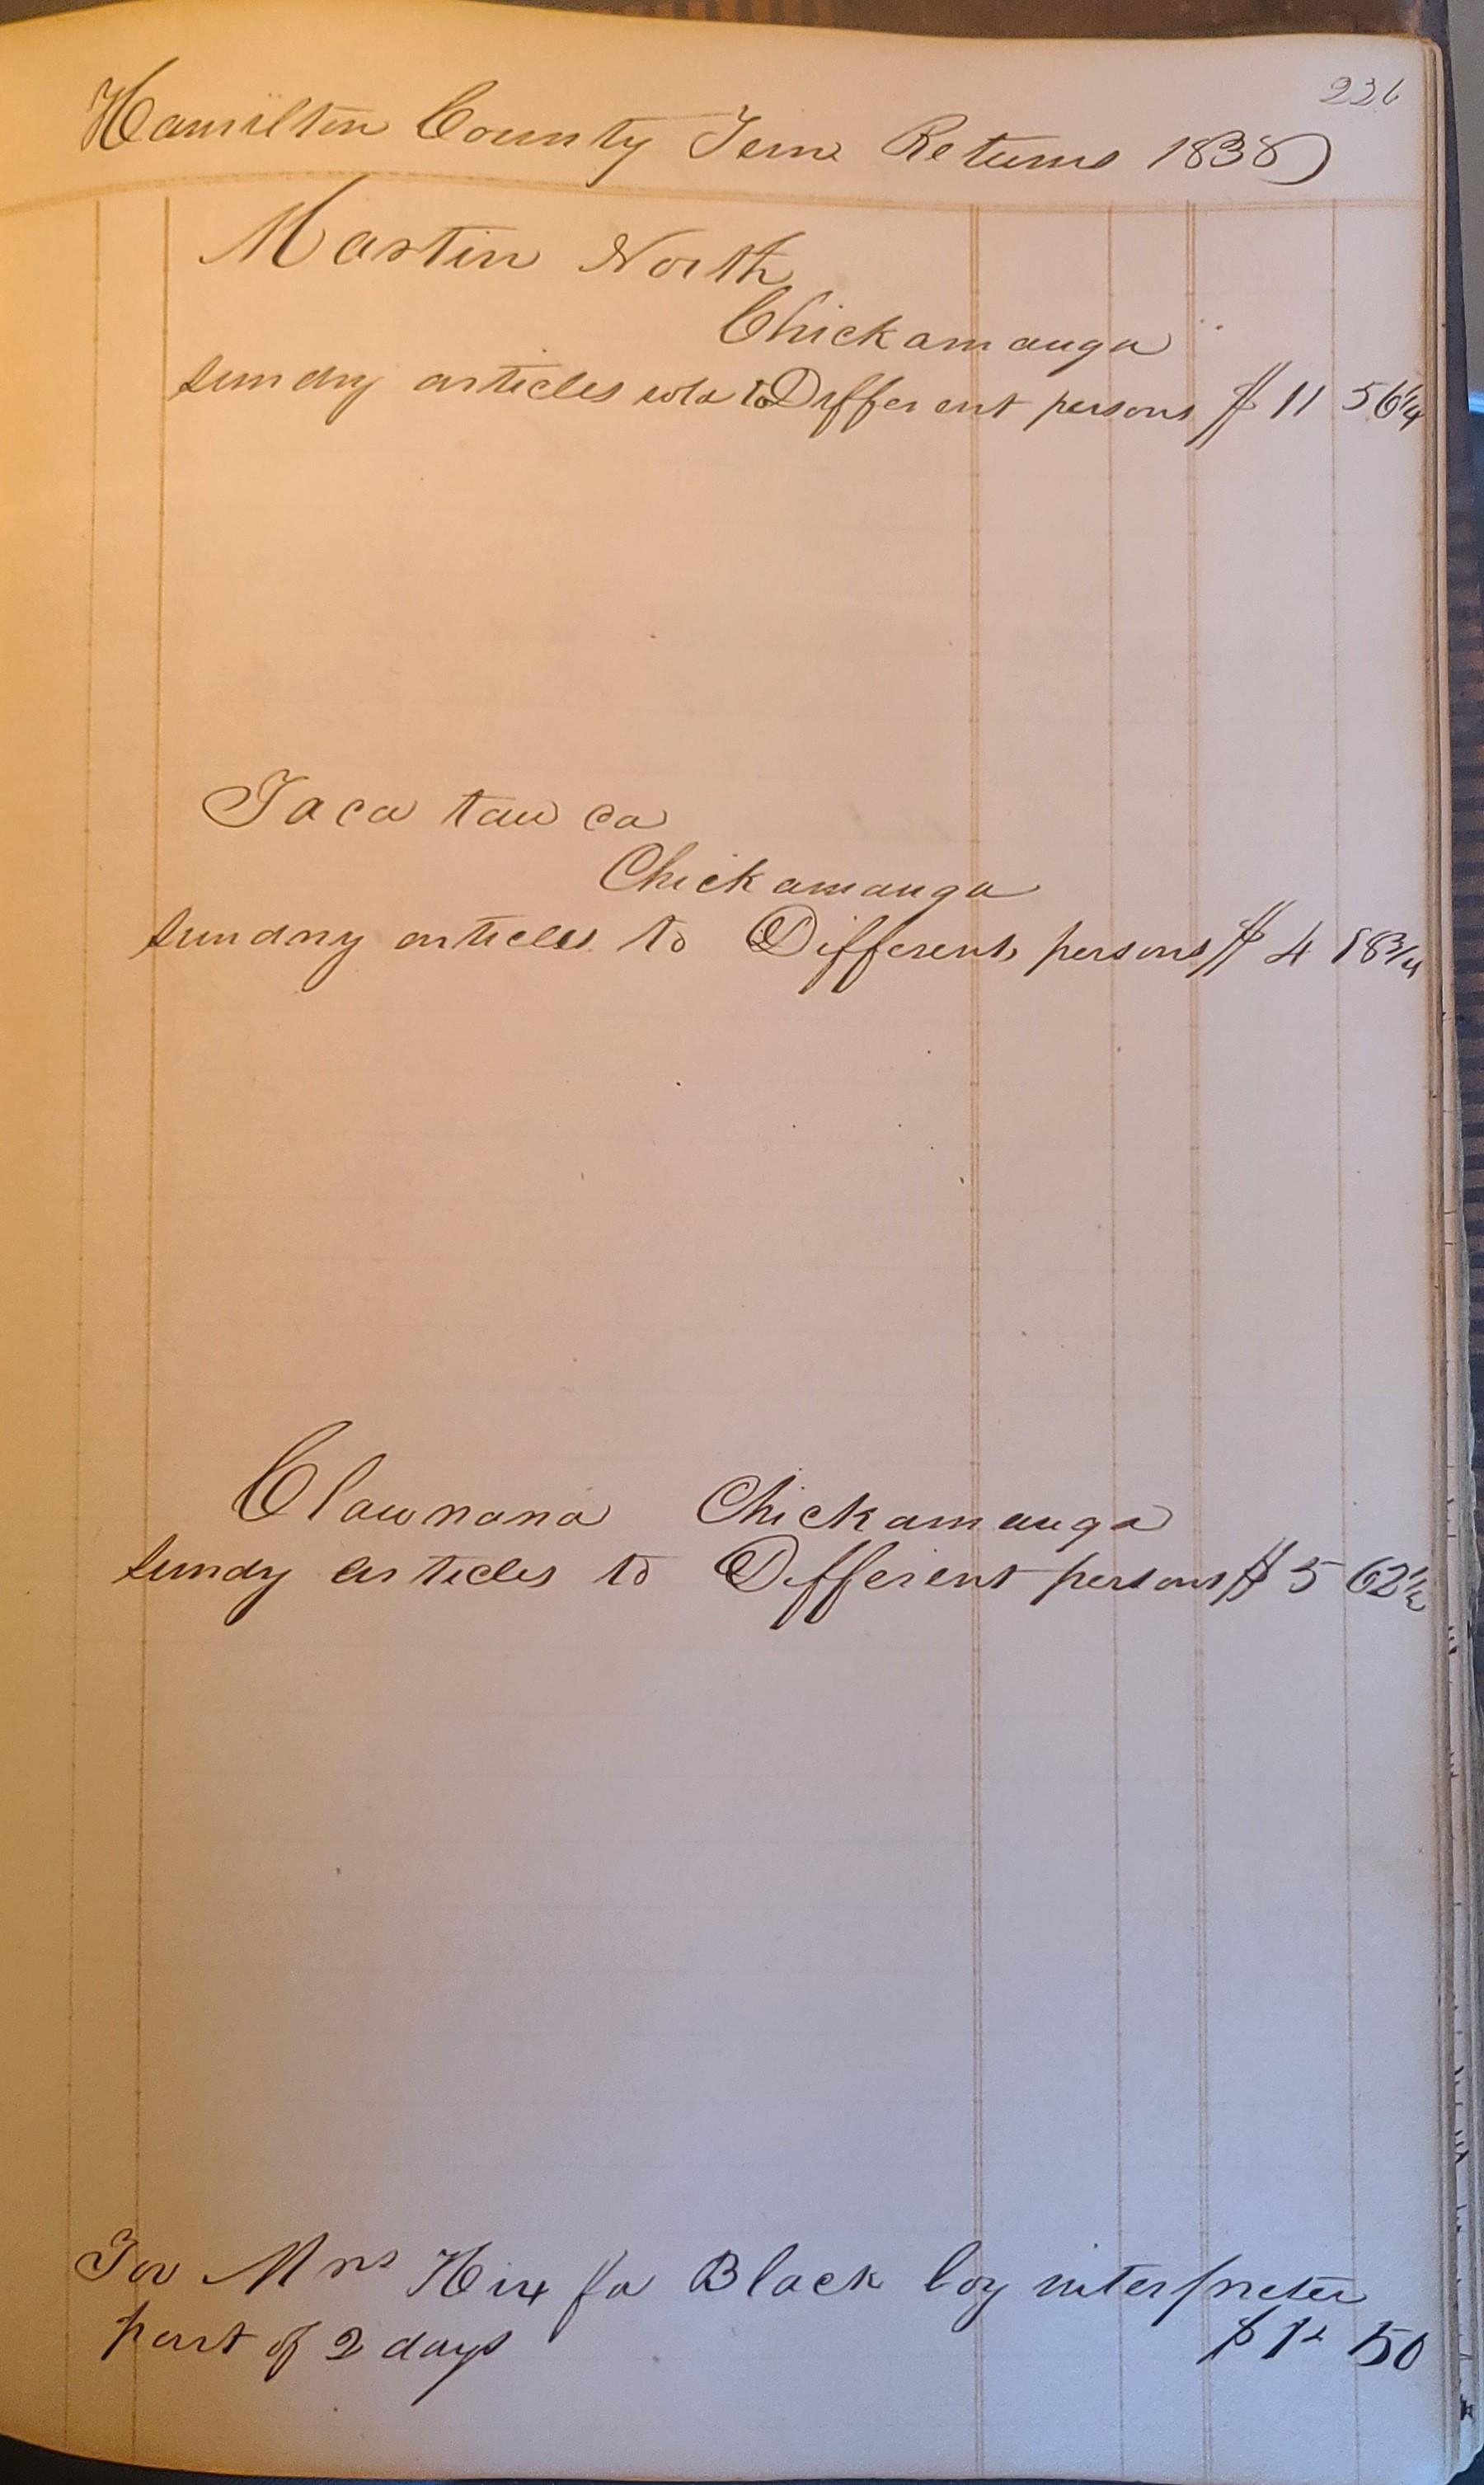 226
Hamilton County Tenn Returns 1838
Martin North
Chickamauga
sundry articles sold to Different persons $ 11 56 1/4
Taca taw ca
Chickamauga
sundry articles to Different persons $ 4 18 3/4
Clawnana Chickamauga
sundy articles to Different persons $ 5 62 1/2
For Mrs Hix for Black boy interpreter
part of 2 days $ 1 50